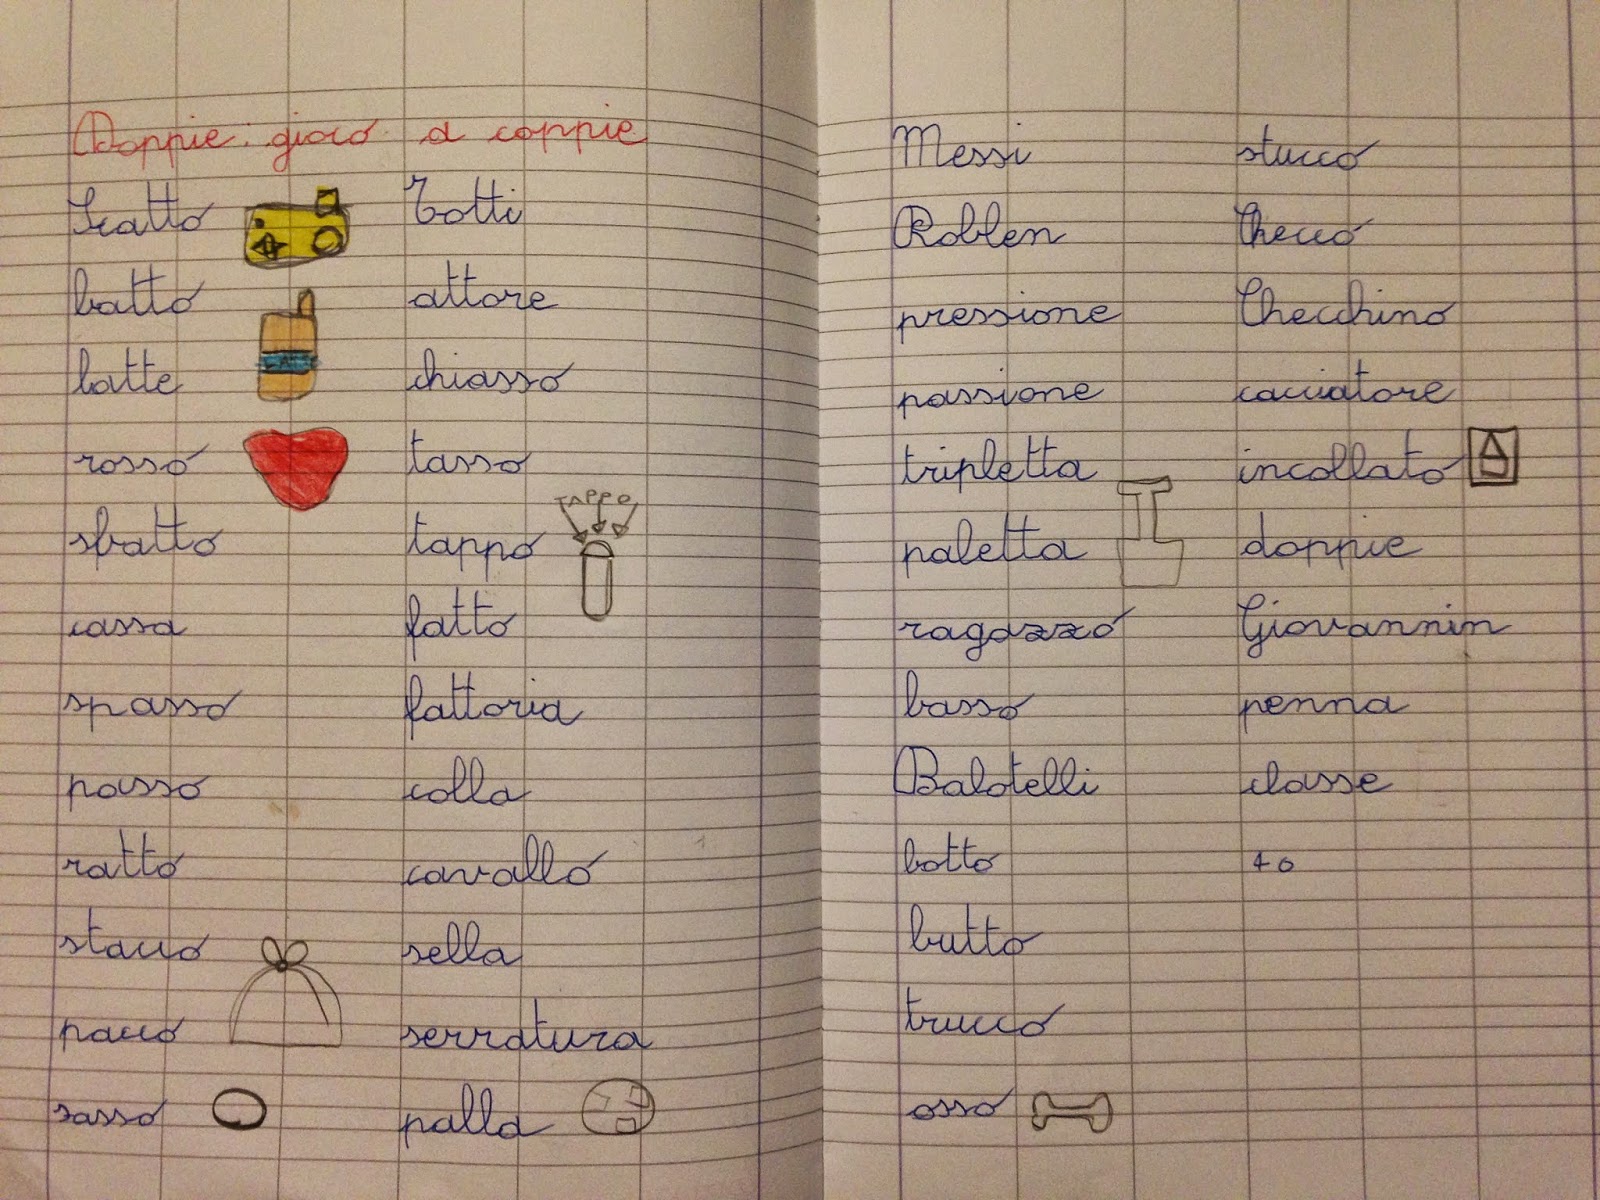 Doppie: gioco a coppie
Scatto
batto
latte
LATTE
rosso
sbatto
cassa
spasso
passo
ratto
stacco
pacco
sasso
Totti
attore
chiasso
tasso
TAPPO
tappo
fatto
fattoria
colla
cavallo
sella
serratura
palla
Messi
Robben
pressione
passione
tripletta
paletta
ragazzo
basso
Balotelli
botto
butto
trucco
osso
stucco
Checco
Checchino
cacciatore
incollato
doppie
Giovannin
penna
classe
40